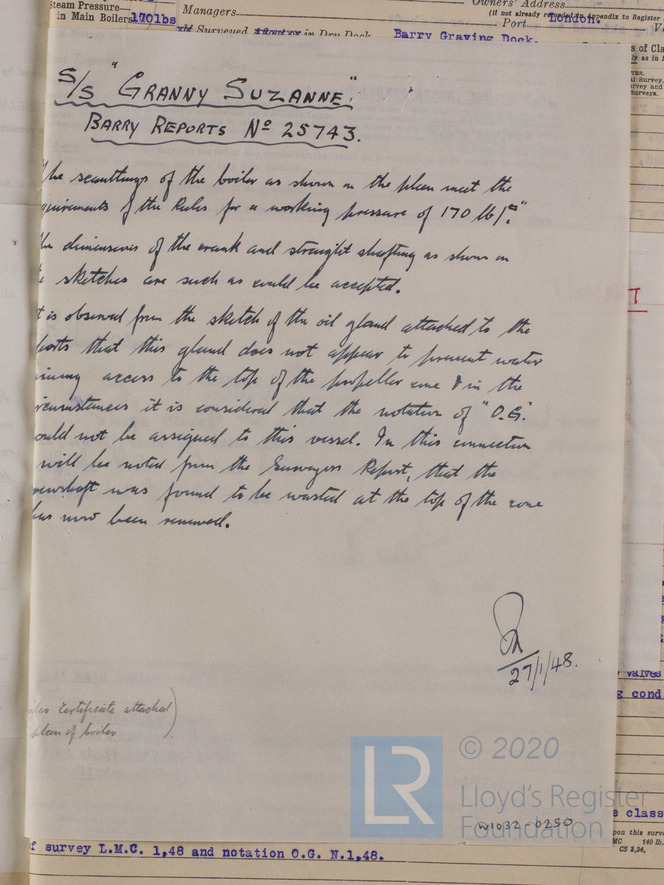 Steam Pressure—
in Main Boilers 170lbs
Managers
Owners' Address
(if not already to Register
Port London.
Surveyed Afloat or in Dry Dock Barry Graving Dock.
s of Cla
ly as in
al Survey.
rvey and
Surveys.
S/S "GRANNY SUZANNE".
BARRY REPORTS Nº 25743.
he scantlings of the boiler as shown on the plan meet the
quirements of the Rules for a working pressure of 170 lb/□".
he dimensions of the crank and straight shafting as shown on
e sketches are such as could be accepted.
t is observed from the sketch of the oil gland attached to the
ports that this gland does not appear to prevent water
ining access to the top of the propeller cone & in the
rcumstances it is considered that the notation of "O.G."
ould not be assigned to this vessel. In this connection
will be noted from the Surveyors Report, that the
rewshaft was found to be wasted at the top of the cone
has now been renewed.
27/1/48.
iler certificate attached
plan of boiler
T
valves
g cond
© 2020
Lloyd's Register
Foundation
W1032-0250
s class
pon this surve
MC 140 lb.
CS 2,34,
f survey L.M.C. 1,48 and notation O.G. N.1,48.